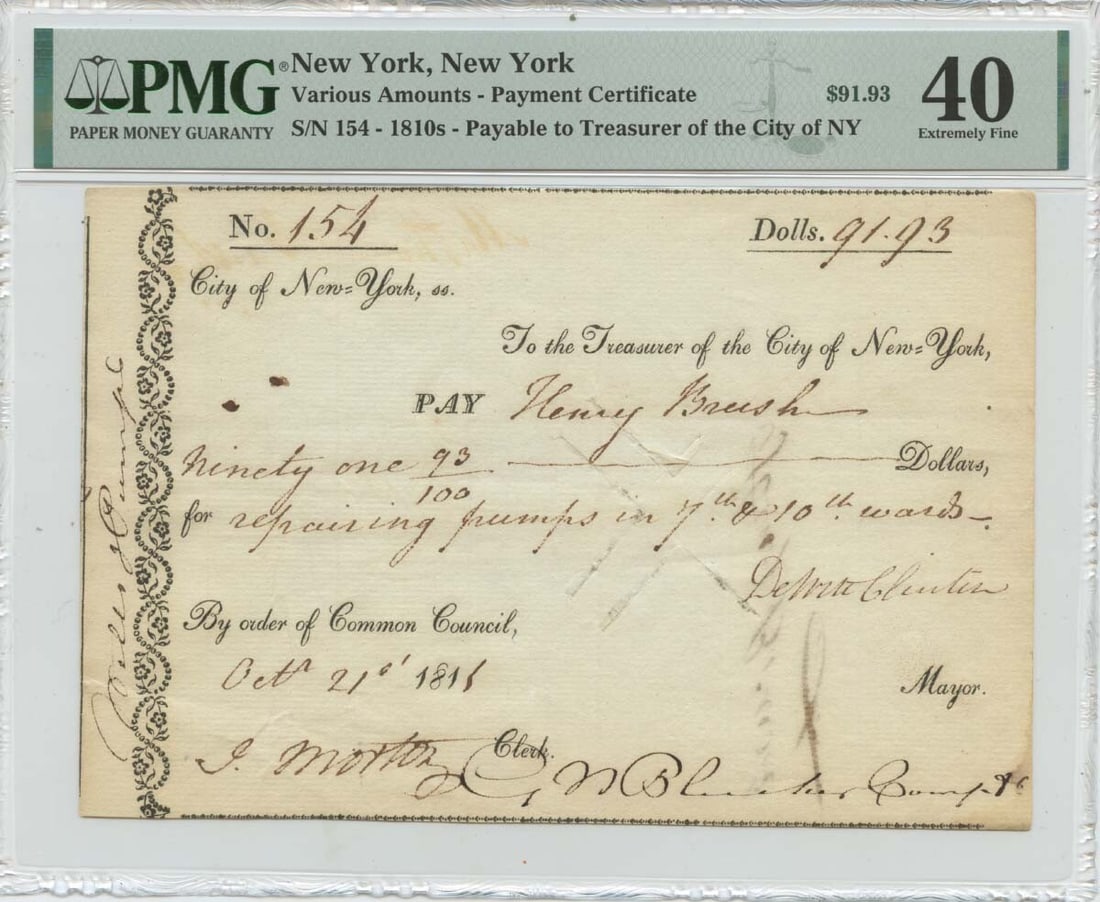 PMG® New York, New York
PAPER MONEY GUARANTY
Various Amounts - Payment Certificate $91.93
S/N 154 - 1810s - Payable to Treasurer of the City of NY
40
Extremely Fine
No. 154 Dolls. 91.93
City of New=York, ss.
To the Treasurer of the City of New=York,
PAY Henry Brush
Ninety one 93/100 Dollars,
for repairing pumps in 7th & 10th wards
DeWitt Clinton
By order of Common Council,
Octr 21st 1811
Mayor.
J. Morton Clerk.
Comp
Wells & Pumps